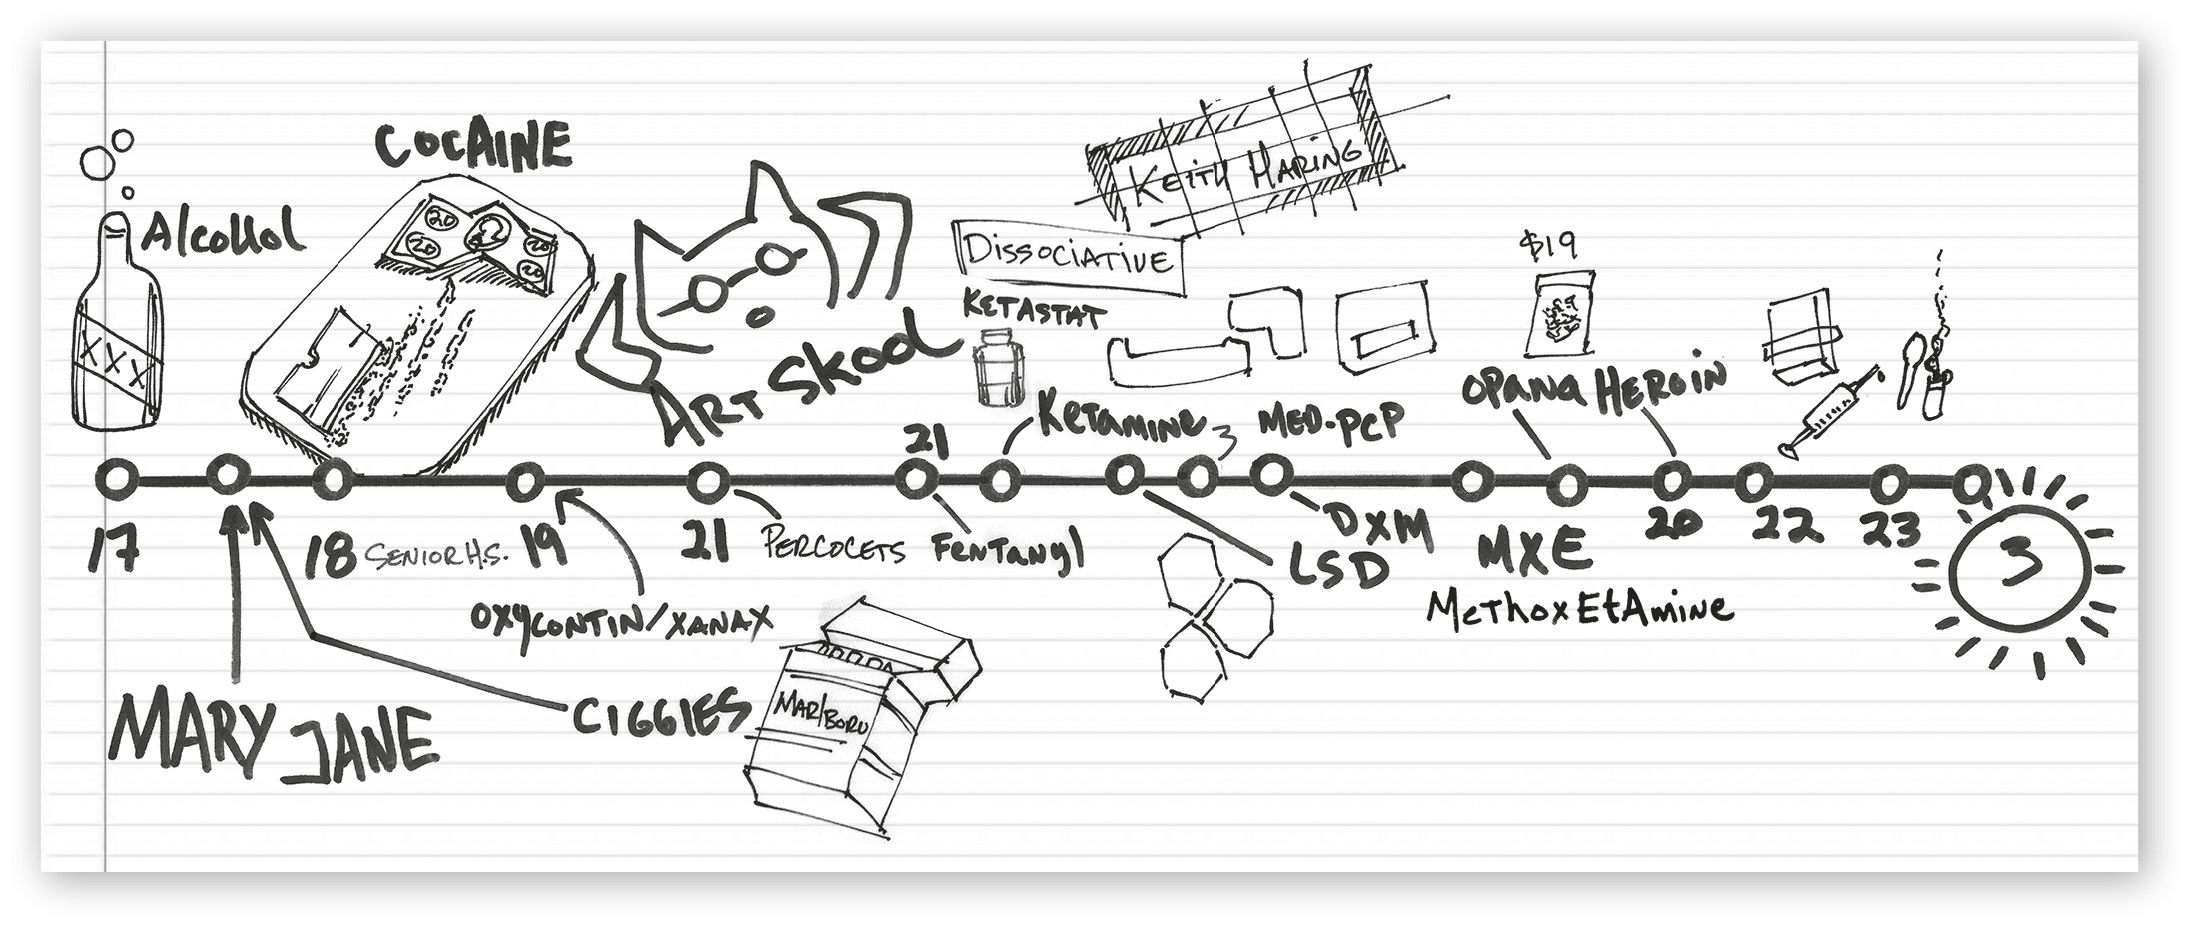 Alcohol
XXX
COCAINE
20 20 20 20
ART SKOOL
Dissociative
KETASTAT
KEITH HARING
Ketamine
3
MED-PCP
$19
OPANA
HEROIN
21
17
18
SENIOR H.S.
19
21
PERCOCETS
FENTANYl
DXM
LSD
MXE
METHOXETAMINE
20
22
23
3
OXYCONTIN/XANAX
MARY JANE
CIGGIES
MARlBORO